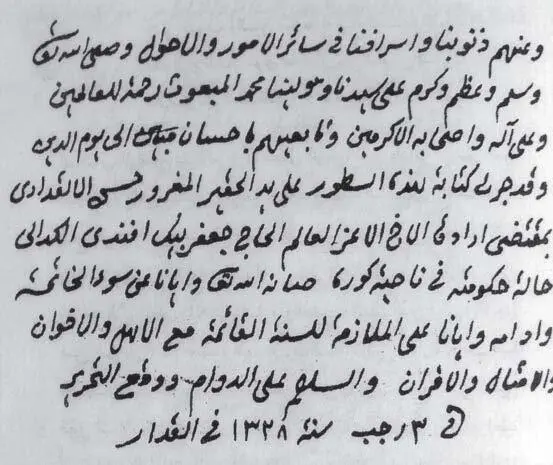 وعنهم ذنوبنا واسرافنا في سائر الامور والاحوال وصلى الله تعالى
وسلم وعظم وكرم على سيدنا ومولينا محمد المبعوث رحمة للعالمين
وعلى آله واصحابه الاكرمين وتابعيهم باحسان الى يوم الدين
وقد جرى كتابة هذه السطور على يد الحقير المغرور حسن الالقدارى
بمقتضى ارادة الاخ الاعز العالم الحاج جعفر بيك افندى الكدالى
حالة حكومته في ناحية كوره صانه الله تعالى وايانا عن سوء الخاتمة
وادامه وايانا على الملازمة للسنة القائمة مع الاهل والاخوان
والامثال والاقران والسلام على الدوام ووقع التحرير
في ٣ رجب سنة ١٣٢٨ في القدار